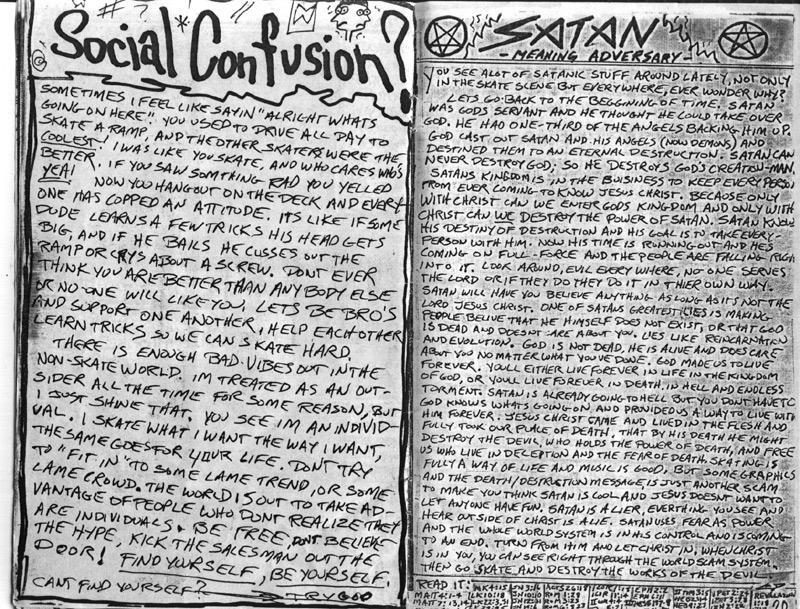 Social Confusion?
SOMETIMES I FEEL LIKE SAYIN "ALRIGHT WHATS
GOING ON HERE". YOU USED TO DRIVE ALL DAY TO
SKATE A RAMP, AND THE OTHER SKATERS WERE THE
COOLEST. I WAS LIKE YOU SKATE, AND WHO CARES WHO'S
BETTER. IF YOU SAW SOMTHING RAD YOU YELLED
YEA!
NOW YOU HANG OUT ON THE DECK AND EVERY-
ONE HAS COPPED AN ATTITUDE. ITS LIKE IF SOME
DUDE LEARNS A FEW TRICKS HIS HEAD GETS
BIG, AND IF HE BAILS HE CUSSES OUT THE
RAMP OR CRYS ABOUT A SCREW. DONT EVER
THINK YOU ARE BETTER THAN ANY BODY ELSE
OR NO-ONE WILL LIKE YOU. LETS BE BRO'S
AND SUPPORT ONE ANOTHER, HELP EACH OTHER
LEARN TRICKS SO WE CAN SKATE HARD.
THERE IS ENOUGH BAD VIBES OUT IN THE
NON-SKATE WORLD. IM TREATED AS AN OUT-
SIDER ALL THE TIME FOR SOME REASON, BUT
I JUST SHINE THAT. YOU SEE IM AN INDIVID-
VAL. I SKATE WHAT I WANT THE WAY I WANT,
THE SAME GOES FOR YOUR LIFE. DONT TRY
TO "FIT IN" TO SOME LAME TREND, OR SOME
LAME CROWD. THE WORLD IS OUT TO TAKE AD-
VANTAGE OF PEOPLE WHO DONT REALIZE THEY
ARE INDIVIDUALS. BE FREE, DONT BELIEVE
THE HYPE, KICK THE SALESMAN OUT THE
DOOR! FIND YOURSELF, BE YOURSELF.
CANT FIND YOURSELF? TRY GOD
SATAN
- MEANING ADVERSARY -
YOU SEE ALOT OF SATANIC STUFF AROUND LATELY, NOT ONLY
IN THE SKATE SCENE BUT EVERYWHERE, EVER WONDER WHY?
LETS GO BACK TO THE BEGGINING OF TIME. SATAN
WAS GODS SERVANT AND HE THOUGHT HE COULD TAKE OVER
GOD. HE HAD ONE-THIRD OF THE ANGELS BACKING HIM UP.
GOD CAST OUT SATAN AND HIS ANGELS (NOW DEMONS) AND
DESTINED THEM TO AN ETERNAL DESTRUCTION. SATAN CAN
NEVER DESTROY GOD; SO HE DESTROYS GOD'S CREATION-MAN.
SATANS KINGDOM IS IN THE BUISINESS TO KEEP EVERY PERSON
FROM EVER COMING TO KNOW JESUS CHRIST. BECAUSE ONLY
WITH CHRIST CAN WE ENTER GODS KINGDOM AND ONLY WITH
CHRIST CAN WE DESTROY THE POWER OF SATAN. SATAN KNOWS
HIS DESTINY OF DESTRUCTION AND HIS GOAL IS TO TAKE EVERY
PERSON WITH HIM. NOW HIS TIME IS RUNNING OUT AND HE'S
COMING ON FULL-FORCE AND THE PEOPLE ARE FALLING RIGH
INTO IT. LOOK AROUND, EVIL EVERY WHERE, NO-ONE SERVES
THE LORD OR IF THEY DO THEY DO IT IN THIER OWN WAY.
SATAN WILL HAVE YOU BELIEVE ANYTHING AS LONG AS IT'S NOT THE
LORD JESUS CHRIST. ONE OF SATANS GREATEST LIES IS MAKING
PEOPLE BELIVE THAT HE HIMSELF DOES NOT EXIST, OR THAT GOD
IS DEAD AND DOESNT CARE ABOUT YOU. LIES LIKE REINCARNATION
AND EVOLUTION. GOD IS NOT DEAD, HE IS ALIVE AND DOES CARE
ABOUT YOU NO MATTER WHAT YOUVE DONE. GOD MADE US TO LIVE
FOREVER. YOULL EITHER LIVE FOREVER IN LIFE IN THE KINGDOM
OF GOD, OR YOULL LIVE FOREVER IN DEATH, IN HELL AND ENDLESS
TORMENT. SATAN IS ALREADY GOING TO HELL BUT YOU DONT HAVE TO
GOD KNOWS WHATS GOING ON, AND PROVIDED US A WAY TO LIVE WITH
HIM FOREVER. JESUS CHRIST CAME AND LIVED IN THE FLESH AND
FULLY TOOK OUR PLACE OF DEATH, THAT BY HIS DEATH HE MIGHT
DESTROY THE DEVIL, WHO HOLDS THE POWER OF DEATH, AND FREE
US WHO LIVE IN DECEPTION AND THE FEAR OF DEATH. SKATING IS
FULLY A WAY OF LIFE AND MUSIC IS GOOD, BUT SOME GRAPHICS
AND THE DEATH/DESTRUCTION MESSAGE IS JUST ANOTHER SCAM
TO MAKE YOU THINK SATAN IS COOL AND JESUS DOESNT WANT TO
LET ANYONE HAVE FUN. SATAN IS A LIER, EVERTHING YOU SEE AND
HEAR OUTSIDE OF CHRIST IS A LIE. SATAN USES FEAR AS POWER
AND THE WHOLE WORLD SYSTEM IS IN HIS CONTROL AND IS COMING
TO AN END. TURN FROM HIM AND LET CHRIST IN. WHEN CHRIST
IS IN YOU, YOU CAN SEE RIGHT THROUGH THE WORLD SCAM SYSTEM.
THEN GO SKATE AND DESTROY THE WORKS OF THE DEVIL
READ IT:
REVELATION